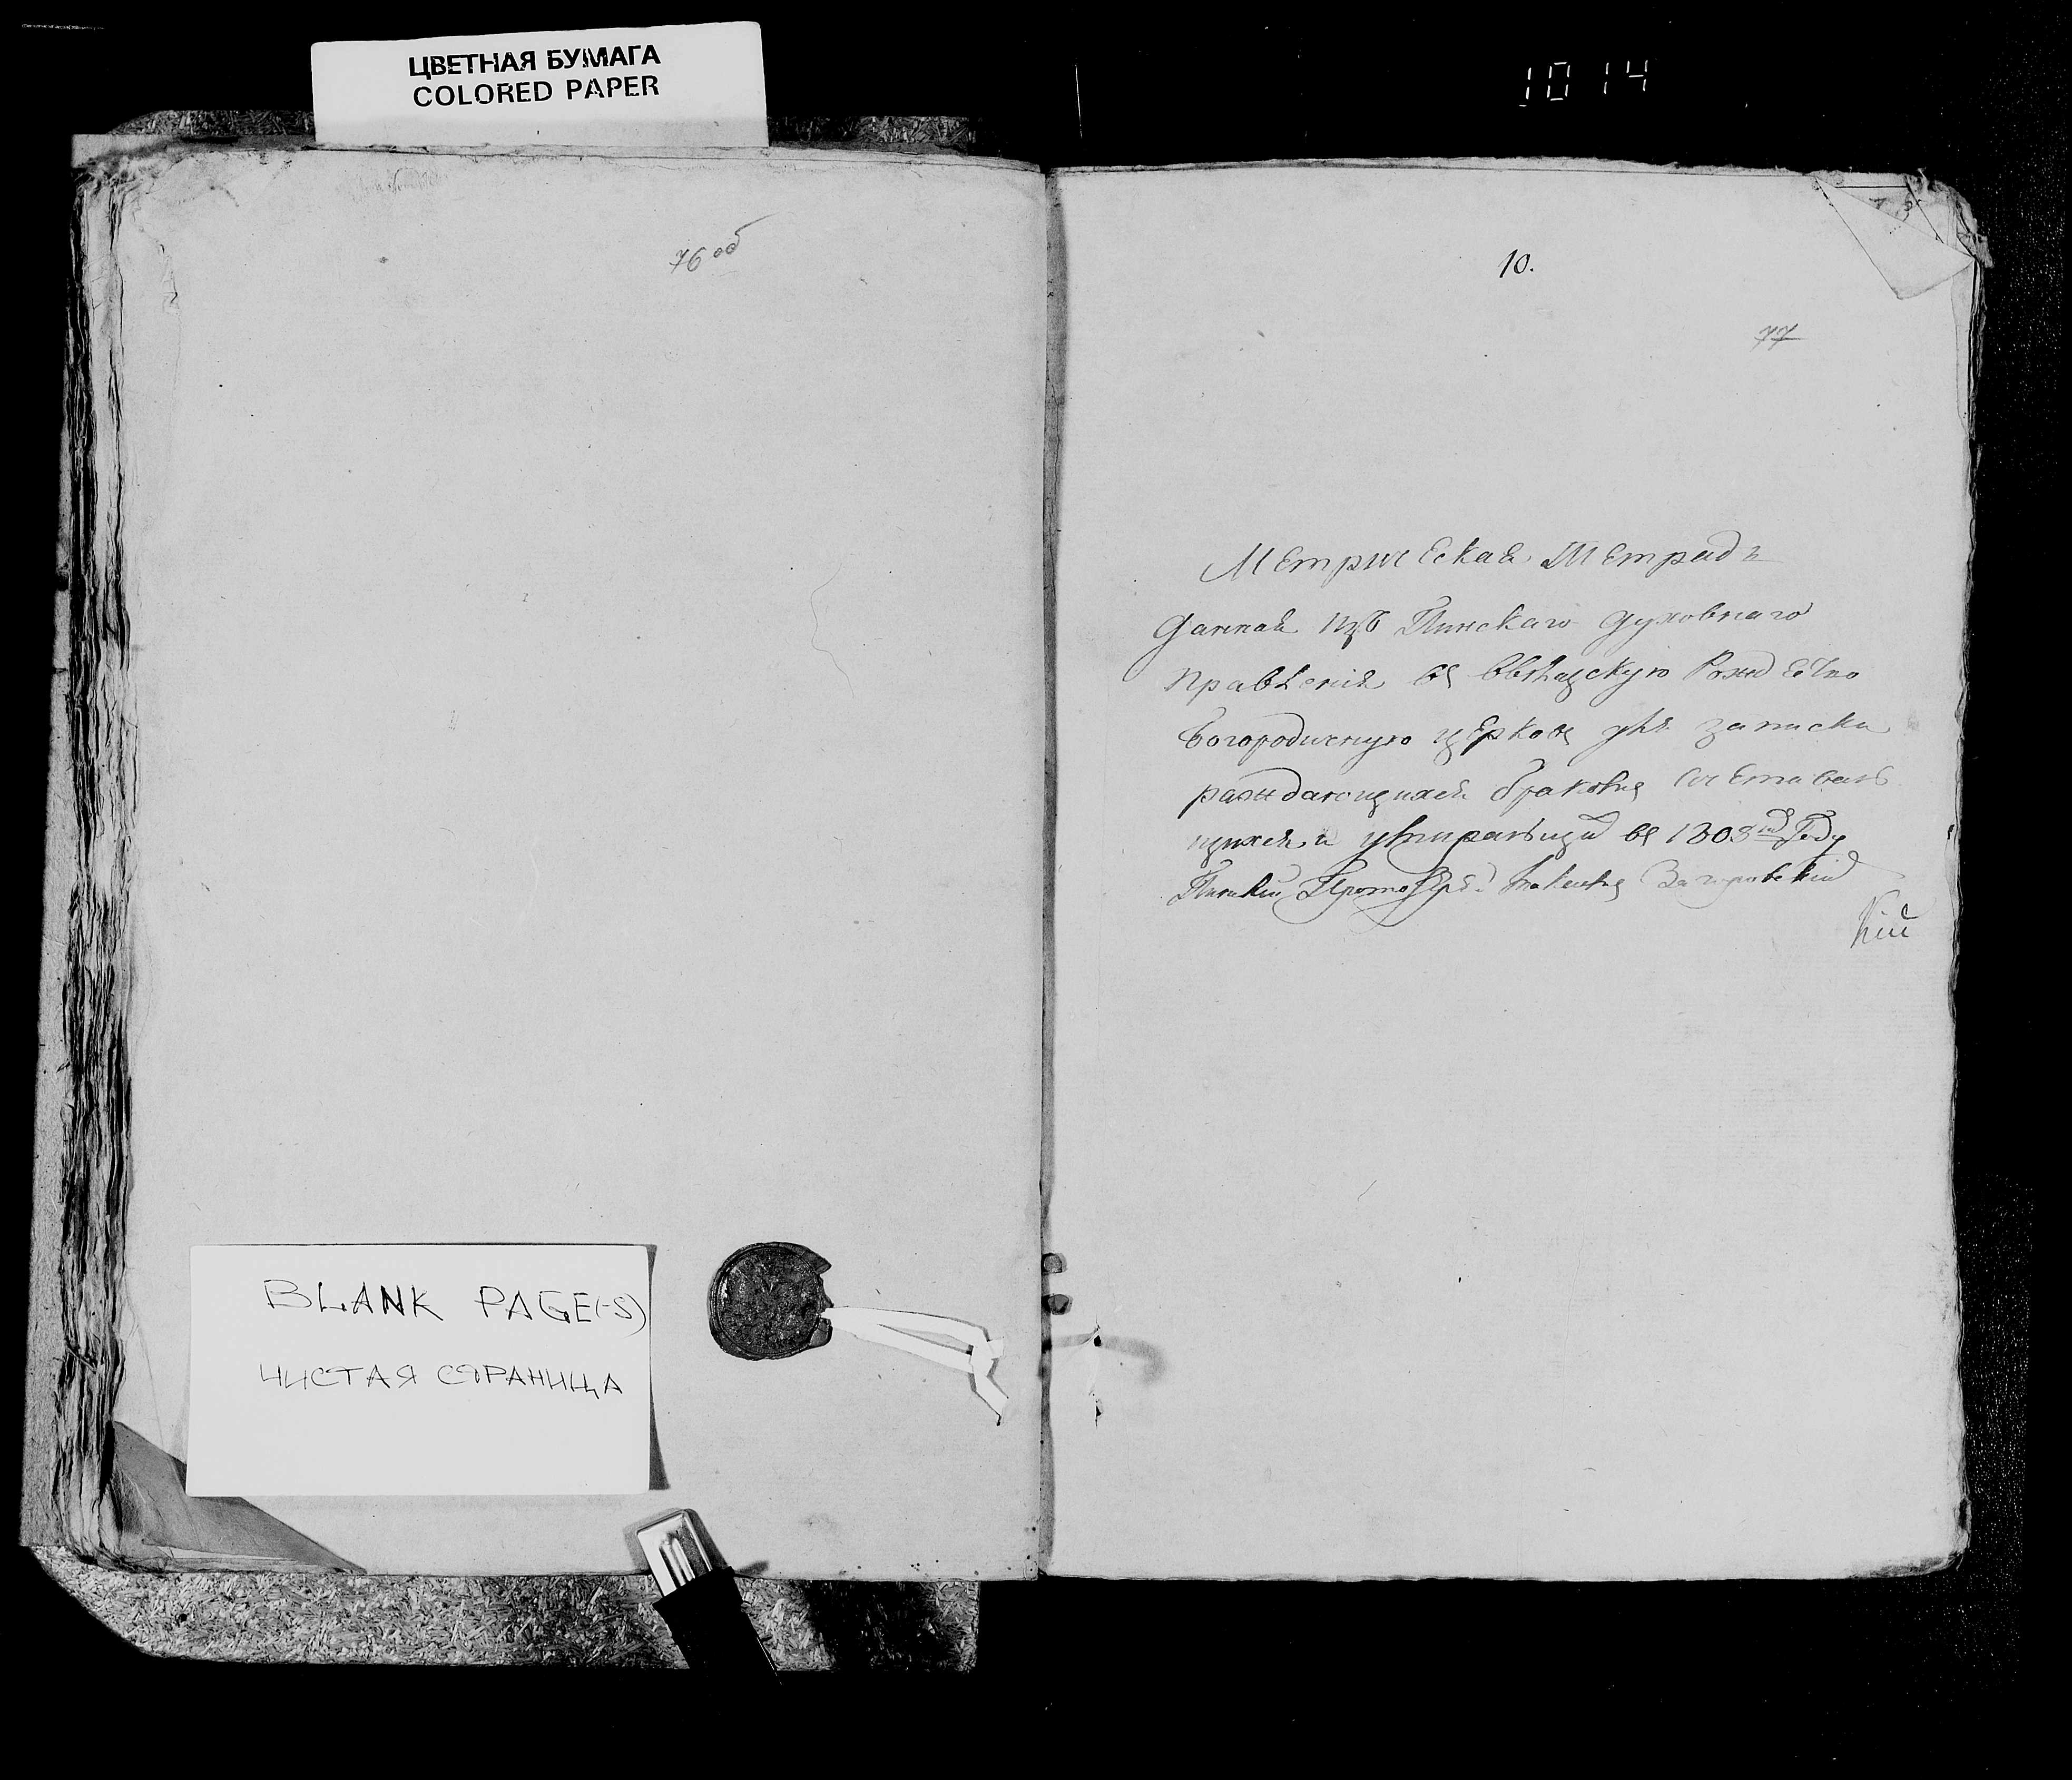 ЦВЕТНАЯ БУМАГА
COLORED PAPER
1014
76 об
10.
77
Метрическая Тетрадь
данная изъ Пинскаго духовнаго
правления въ Рождестве
Богородичную церковь для записки
раждающихся браковъ сочетаваю
щихся и умирающи въ 1808 году
Пински Прото
кій
BLANK PAGE(-S)
ЧИСТАЯ СТРАНИЦА